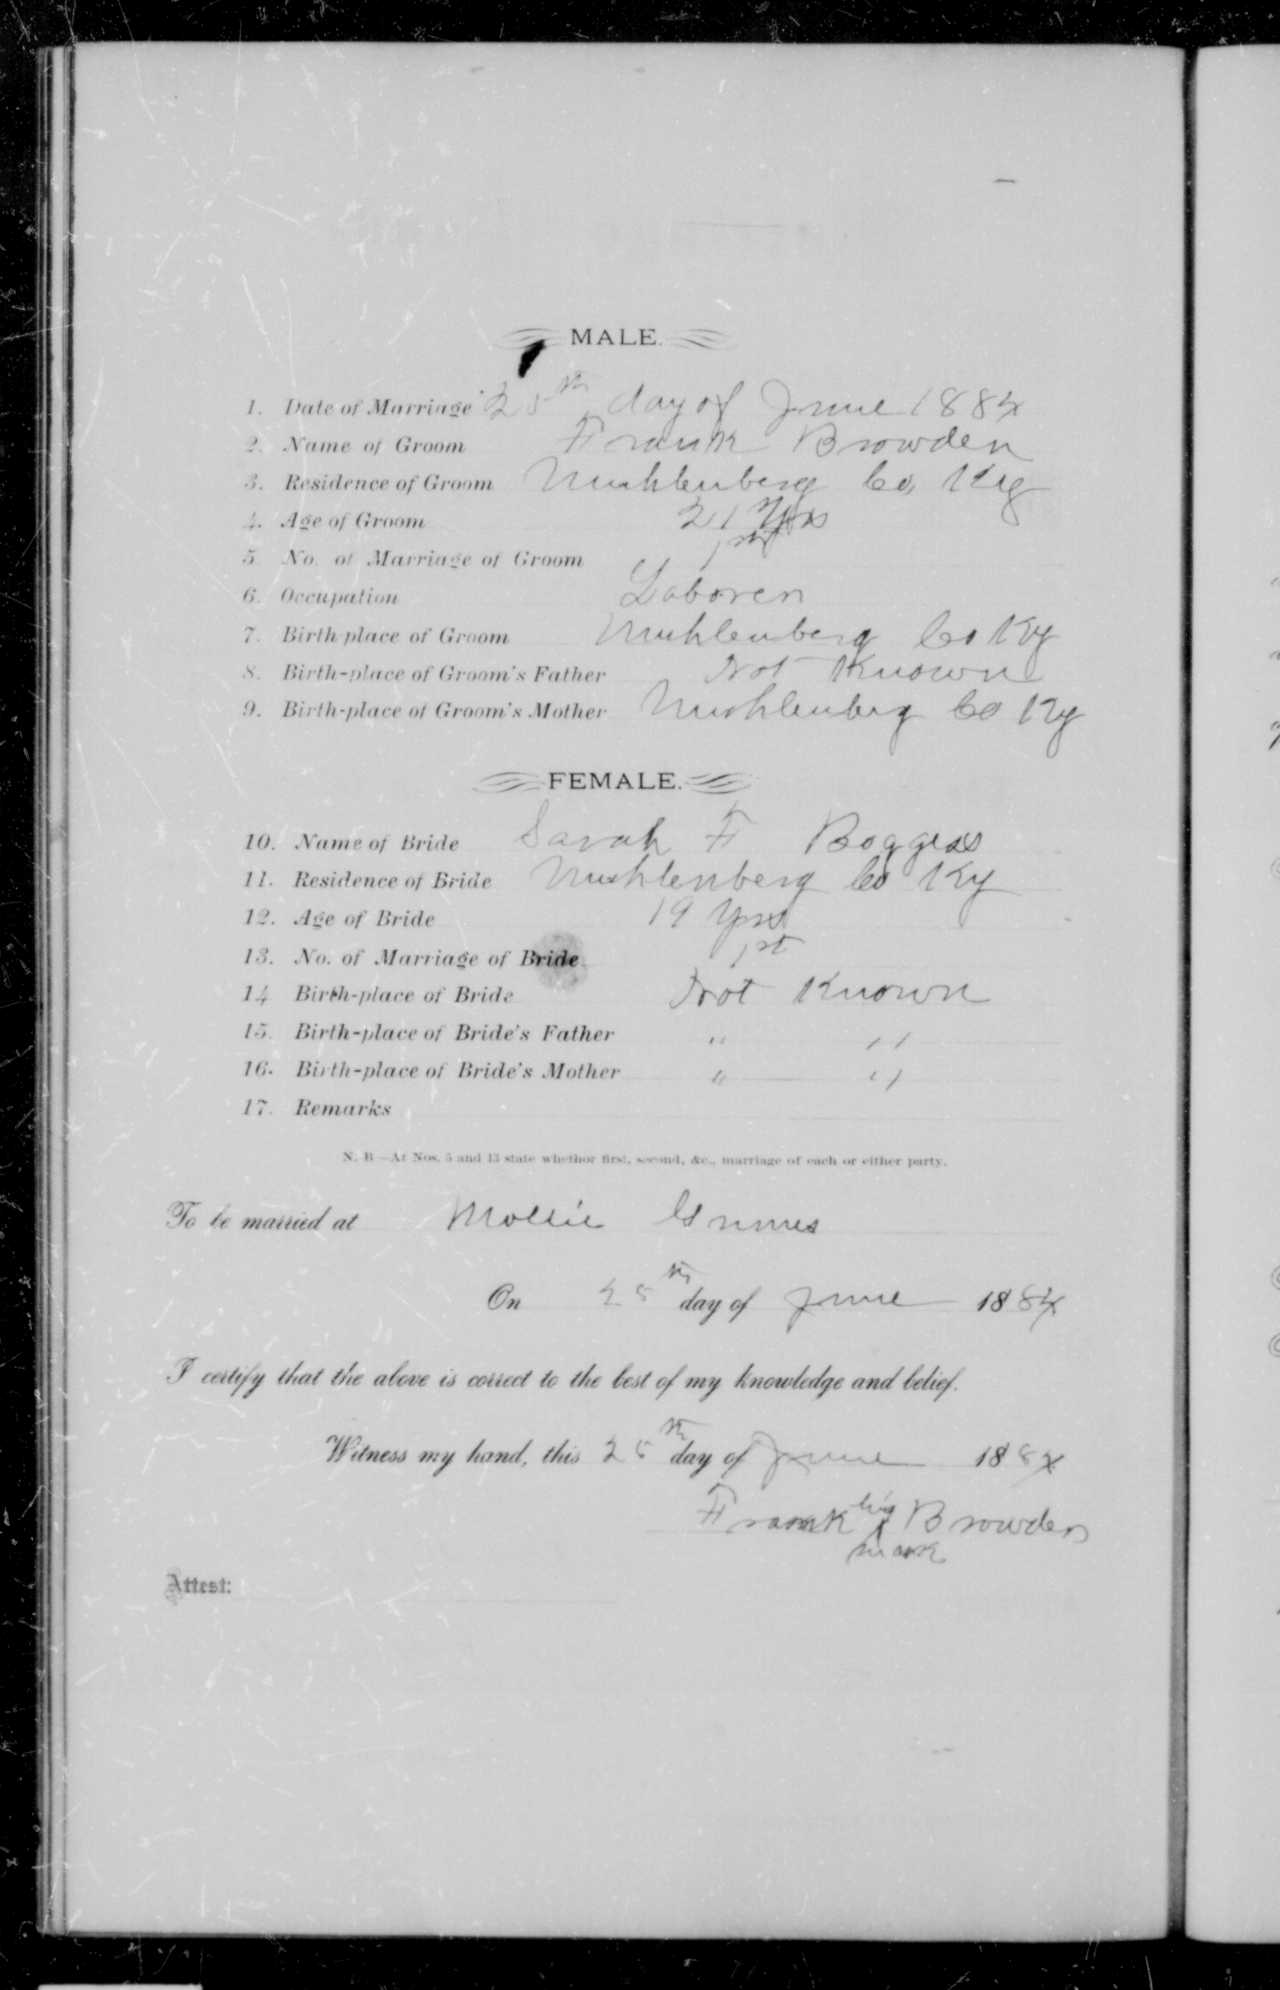 MALE.
1. Date of Marriage 25th day of June 1884
2. Name of Groom Frank Browder
3. Residence of Groom Muhlenberg Co, Ky
4. Age of Groom 21 Yrs
5. No. of Marriage of Groom 1st
6. Occupation Laborer
7. Birth-place of Groom Muhlenberg Co Ky
8. Birth-place of Groom's Father Not Known
9. Birth-place of Groom's Mother Muhlenberg Co Ky
FEMALE.
10. Name of Bride Sarah F Boggess
11. Residence of Bride Muhlenberg Co Ky
12. Age of Bride 19 Yrs
13. No. of Marriage of Bride 1st
14. Birth-place of Bride Not Known
15. Birth-place of Bride's Father " "
16. Birth-place of Bride's Mother " "
17. Remarks
N. B.—At Nos. 5 and 13 state whether first, second, &c., marriage of each or either party.
To be married at Mollie Grimes
On 25th day of June 1884
I certify that the above is correct to the best of my knowledge and belief.
Witness my hand, this 25th day of June 1884
Frank his x Browder
mark
Attest: